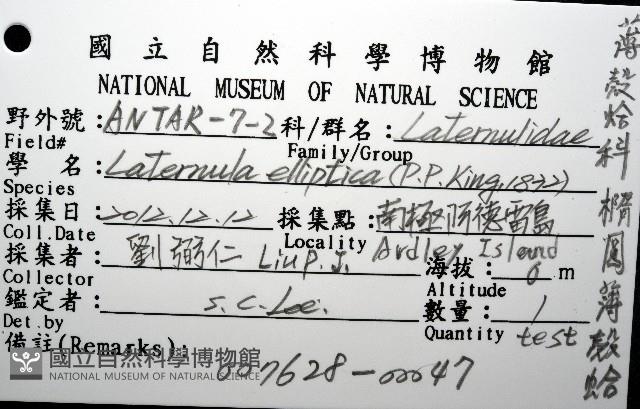 國立自然科學博物館
NATIONAL MUSEUM OF NATURAL SCIENCE
野外號：ANTAR-7-2 科/群名：Laternulidae
Field# Family/Group
學名：Laternula elliptica (P.P. King, 1832)
Species
採集日：2012.12.12 採集點：南極阿德雷島
Coll.Date Locality Ardley Island
採集者：劉弼仁 Liu P. J. 海拔：0 m
Collector Altitude
鑑定者：S.C. Lee. 數量：1
Det.by Quantity test
備註(Remarks)：
007628-00047
薄殼蛤科 橢圓薄殼蛤
國立自然科學博物館
NATIONAL MUSEUM OF NATURAL SCIENCE